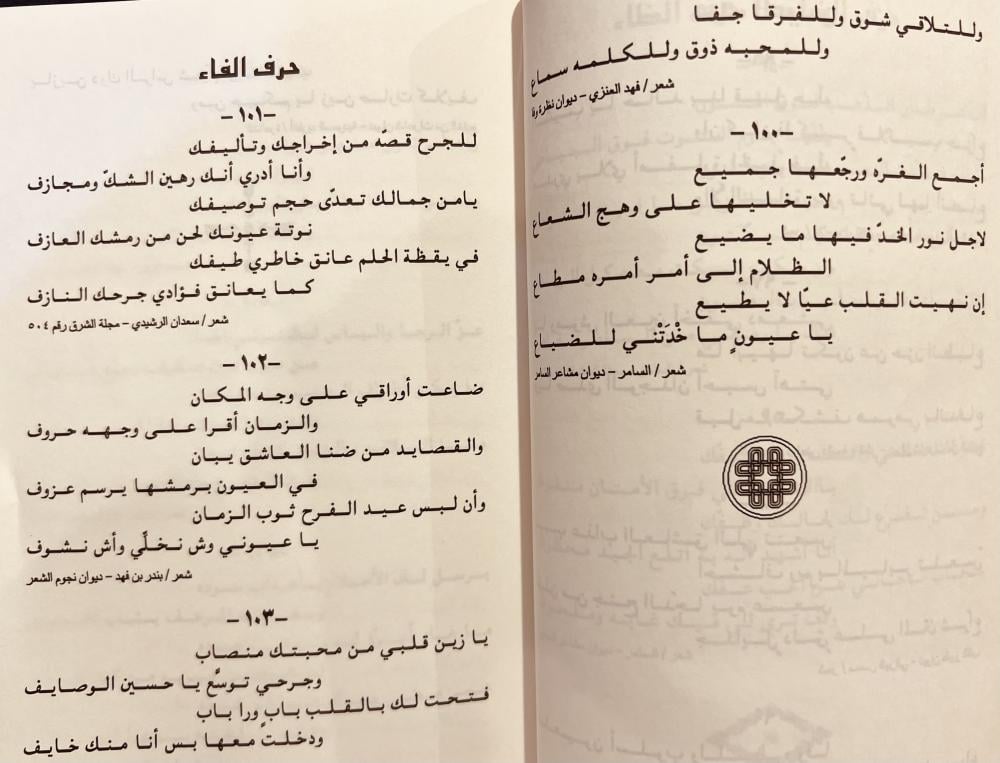 وللتلاقي شوق وللفرقا جفا
وللمحبه ذوق وللكلمه سماع
شعر / فهد العنزي – ديوان نظرة وفا
–١٠٠–
أجمع الغرّه ورجّعها جميع
لا تخليها على وهج الشعاع
لاجل نور الخدّ فيها ما يضيع
الظلام إلى أمر أمره مطاع
إن نهيت القلب عيّا لا يطيع
يا عيونٍ ما خْذَتْني للضياع
شعر / السامر – ديوان مشاعر السامر
حرف الفاء
–١٠١–
للجرح قصّه من إخراجك وتأليفك
وأنا أدري أنك رهين الشكّ ومجازف
يامن جمالك تعدّى حجم توصيفك
نوتة عيونك لحن من رمشك العازف
في يقظة الحلم عانق خاطري طيفك
كما يعانق فؤادي جرحك النازف
شعر / سعدان الرشيدي – مجلة الشرق رقم ٥٠٤
–١٠٢–
ضاعت أوراقي على وجه المكان
والزمان أقرا على وجهه حروف
والقصايد من ضنا العاشق يبان
في العيون برمشها يرسم عزوف
وأن لبس عيد الفرح ثوب الزمان
يا عيوني وش نخلّي وأش نشوف
شعر / بندر بن فهد – ديوان نجوم الشعر
–١٠٣–
يا زين قلبي من محبتك منصاب
وجرحي توسّع يا حسين الوصايف
فتحت لك بالقلب بابٍ ورا باب
ودخلت معها بس أنا منك خايف